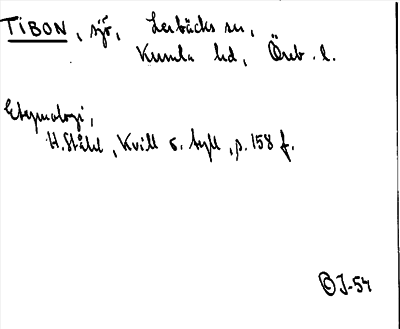 TIBON, sjö, Lerbäcks sn,
Kumla hd, Öreb. l.
Etymologi,
H. Ståhl, Kvill o. tyll, p. 158 f.
© J-54